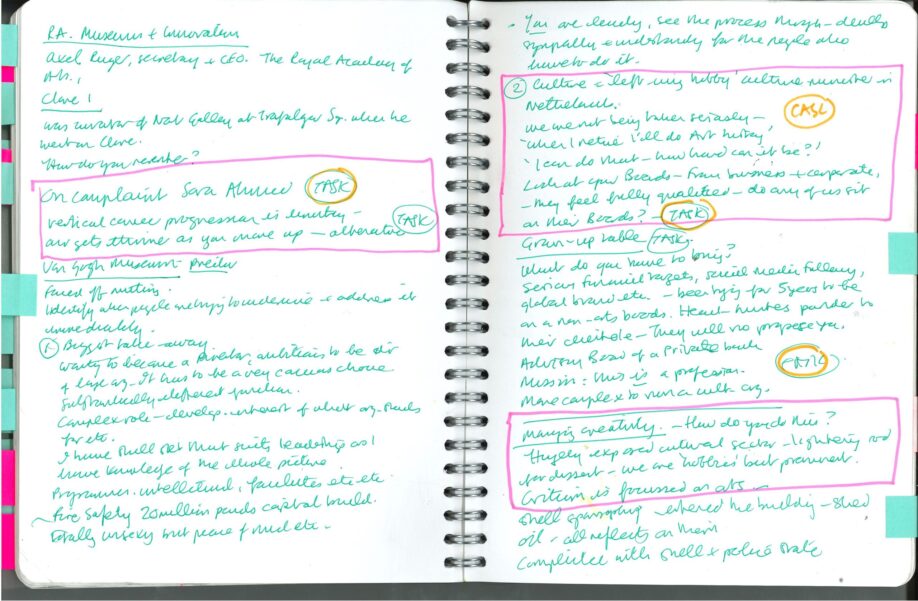 RA. Museums + Innovation
Axel Ruger, secretary + CEO. The Royal Academy of
Arts.,
Clore 1
was curator of Nat Gallery at Trafalgar Sq. when he
went on Clore.
How do you
On Complaint Sara Ahmed TASK
vertical career progression is
air gets thinner as you move up – alternative TASK
Van Gogh Museum –
Faced off
Identify when people are trying to undermine + address it
immediately.
1 Biggest take-away
wanting to become a Director, ambitions to be dir
of large org – It has to be a very conscious choice
Substantially different function.
Complex role – develop. interest of what org. stands
for etc.
I have skill set that suits leadership as I
have knowledge of the whole picture.
Programmer. intellectual, facilities etc etc.
Fire safety 20 million pounds capital build.
Totally unsexy but peace of mind etc –
• You are lonely, see the process through – develop
sympathy + understanding for the people who
have to do it.
2 Culture = 'left-wing hobby' culture minister in
Netherlands.
we are not being taken seriously –
'when I retire I'll do Art history' CASE
'I can do that – how hard can it be?!
Look at your Boards – From business + corporate,
– they feel fully qualified – do any of us sit
on their Boards? – TASK
Grown-up table TASK.
What do you have to bring?
Serious financial targets, social media following,
global brand etc. – been trying for 5 years to be
on a non-arts board. Head hunters pander to
their clientele – They will no propose you.
Advisory Board of a Private bank
Mission: this is a profession.
More complex to run a cult. org.
Managing creativity. – How do you do this?
Hugely exposed cultural sector – lightening rod
for dissent – we are 'hobbies' but prominent.
Criticism is focussed on arts –
Shell sponsorship – entered the building – shed
oil – all reflects on them
Complicit with Shell + police state